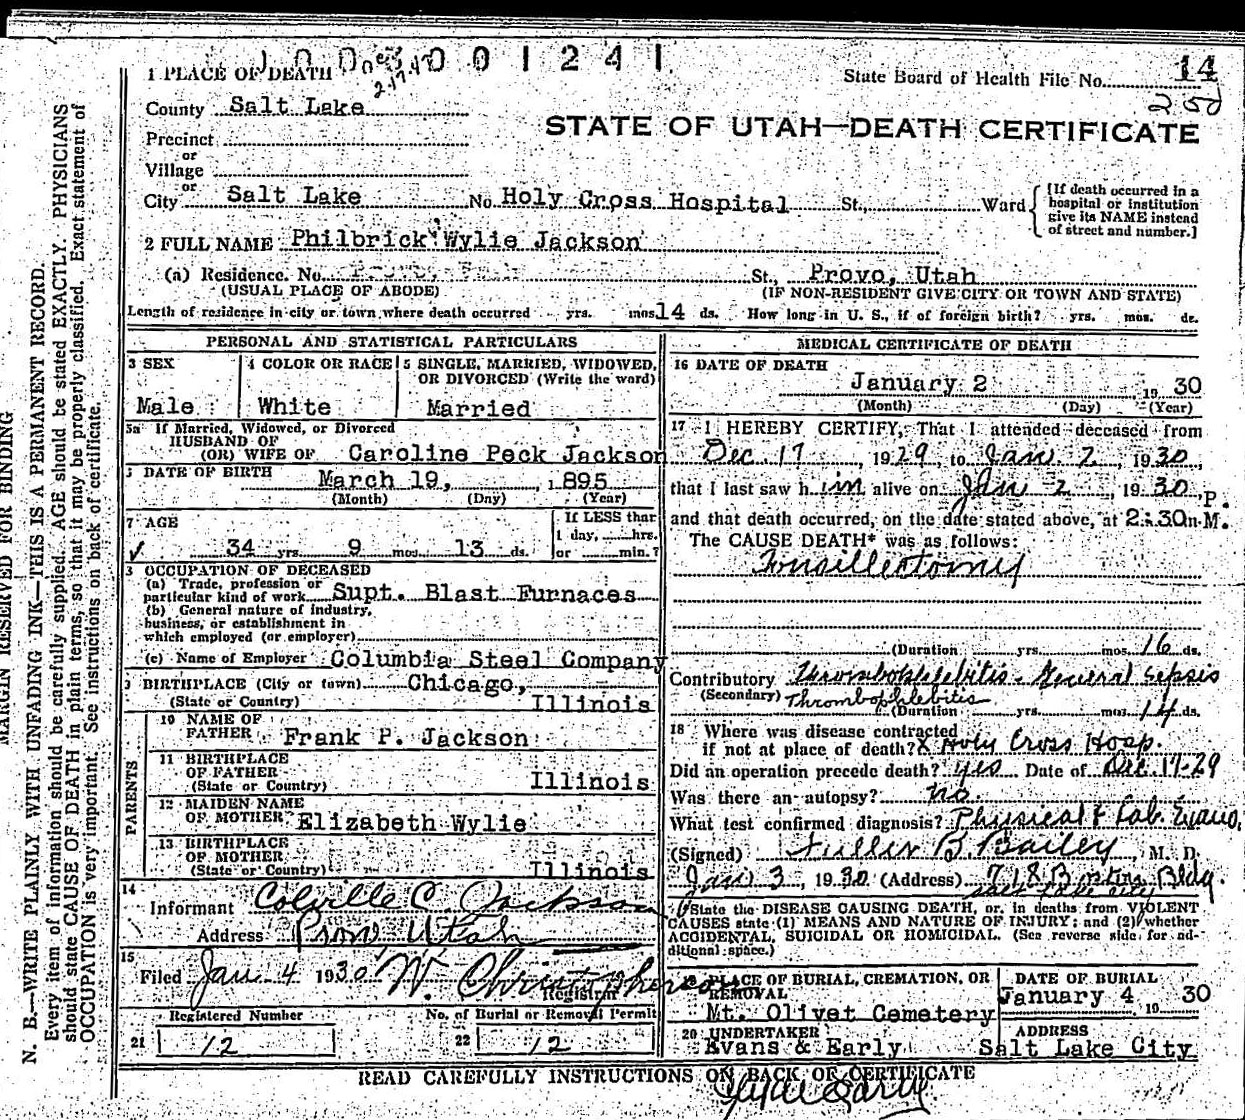 1 0 0 3 0 0 1 2 4 1
2-17-47
1 PLACE OF DEATH
State Board of Health File No. 14
County Salt Lake
STATE OF UTAH—DEATH CERTIFICATE
Precinct
or
Village
or
City Salt Lake No. Holy Cross Hospital St., Ward
[If death occurred in a hospital or institution give its NAME instead of street and number.]
2 FULL NAME Philbrick Wylie Jackson
(a) Residence. No. St., Provo, Utah
(USUAL PLACE OF ABODE) (IF NON-RESIDENT GIVE CITY OR TOWN AND STATE)
Length of residence in city or town where death occurred yrs. mos. 14 ds. How long in U. S., if of foreign birth? yrs. mos. ds.
PERSONAL AND STATISTICAL PARTICULARS
3 SEX 4 COLOR OR RACE 5 SINGLE, MARRIED, WIDOWED,
OR DIVORCED (Write the word)
Male White Married
5a If Married, Widowed, or Divorced
HUSBAND OF
(OR) WIFE OF Caroline Peck Jackson
DATE OF BIRTH March 19, 1895
(Month) (Day) (Year)
7 AGE If LESS than
1 day, hrs.
34 yrs. 9 mos. 13 ds. or min.?
OCCUPATION OF DECEASED
(a) Trade, profession or
particular kind of work Supt. Blast Furnaces
(b) General nature of industry,
business, or establishment in
which employed (or employer)
(c) Name of Employer Columbia Steel Company
BIRTHPLACE (City or town) Chicago,
(State or Country) Illinois
PARENTS
10 NAME OF
FATHER Frank P. Jackson
11 BIRTHPLACE
OF FATHER
(State or Country) Illinois
12 MAIDEN NAME
OF MOTHER Elizabeth Wylie
13 BIRTHPLACE
OF MOTHER
(State or Country) Illinois
14
Informant Colville C. Jackson
Address Provo Utah
15
Filed Jan 4 1930 W. Christopherson
Registrar
Registered Number No. of Burial or Removal Permit
21 12 22 12
MEDICAL CERTIFICATE OF DEATH
16 DATE OF DEATH
January 2 19 30
(Month) (Day) (Year)
17 I HEREBY CERTIFY, That I attended deceased from
Dec. 17, 1929, to Jan 2 1930,
that I last saw h im alive on Jan 2, 1930,
and that death occurred, on the date stated above, at 2:30 P.M.
The CAUSE DEATH* was as follows:
Tonsillectomy
(Duration yrs. mos. 16 ds.
Contributory Thrombophlebitis - General Sepsis
(Secondary) Thrombophlebitis
(Duration yrs. mos. 14 ds.
18 Where was disease contracted
if not at place of death? X Holy Cross Hosp.
Did an operation precede death? yes Date of Dec. 17-29
Was there an autopsy? no
What test confirmed diagnosis? Physical & Lab. Exams.
(Signed) Fuller B. Bailey, M. D.
Jan 3, 1930 (Address) 718 Boston Bldg.
Salt Lake City
*State the DISEASE CAUSING DEATH, or, in deaths from VIOLENT
CAUSES state (1) MEANS AND NATURE OF INJURY; and (2) whether
ACCIDENTAL, SUICIDAL OR HOMICIDAL. (See reverse side for ad-
ditional space.)
19 PLACE OF BURIAL, CREMATION, OR DATE OF BURIAL
REMOVAL
Mt. Olivet Cemetery January 4 19 30
20 UNDERTAKER ADDRESS
Evans & Early Salt Lake City
READ CAREFULLY INSTRUCTIONS ON BACK OF CERTIFICATE
MARGIN RESERVED FOR BINDING
N. B.—WRITE PLAINLY WITH UNFADING INK—THIS IS A PERMANENT RECORD.
Every item of information should be carefully supplied. AGE should be stated EXACTLY. PHYSICIANS
should state CAUSE OF DEATH in plain terms, so that it may be properly classified. Exact statement of
OCCUPATION is very important. See instructions on back of certificate.